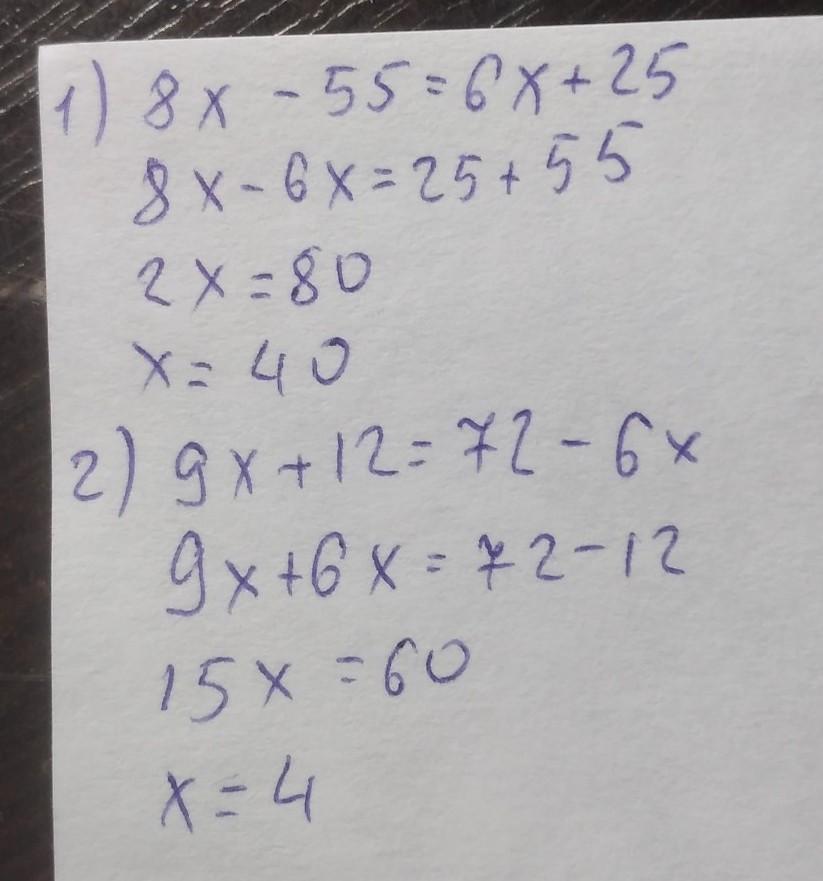 1) 8x - 55 = 6x + 25
8x - 6x = 25 + 55
2x = 80
x = 40
2) 9x + 12 = 72 - 6x
9x + 6x = 72 - 12
15x = 60
x = 4